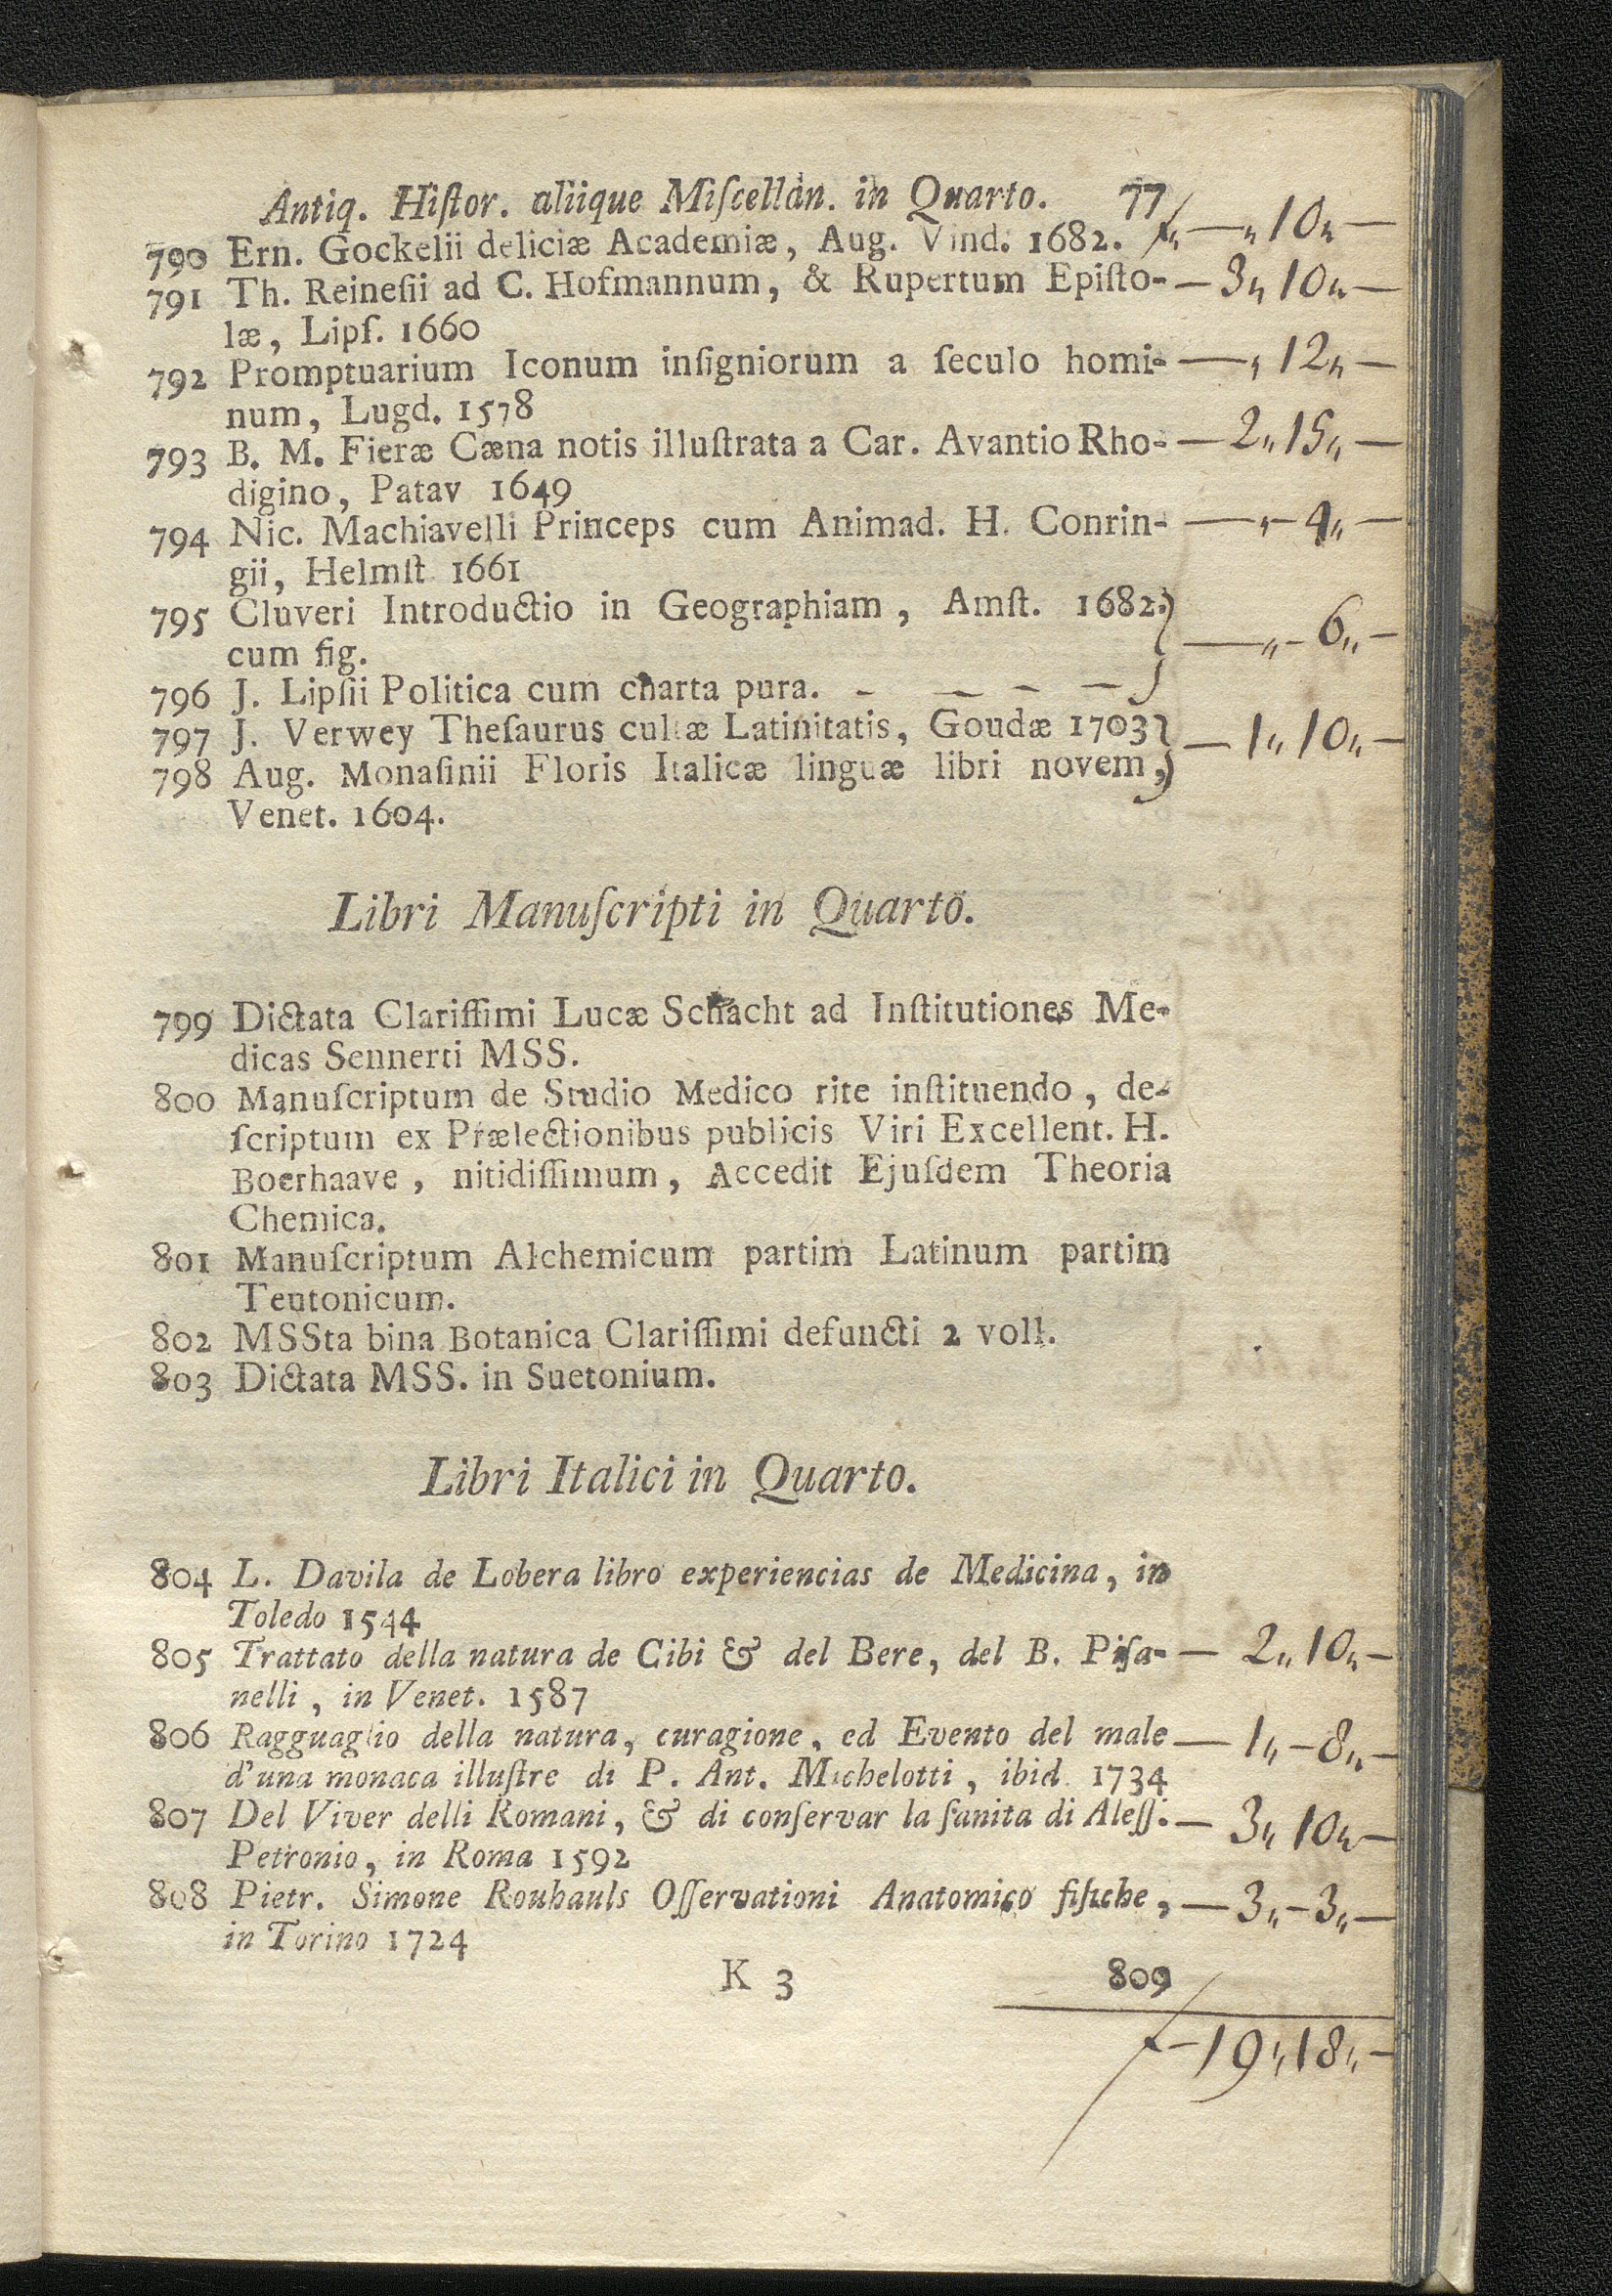 Antiq. Hiſtor. aliique Miſcellan. in Quarto. 77
790 Ern. Gockelii deliciæ Academiæ, Aug. Vind. 1682. ƒ„ — „ 10 „ —
791 Th. Reineſii ad C. Hofmannum, & Rupertum Epiſto- — 3 „ 10 „ —
læ, Lipſ. 1660
792 Promptuarium Iconum inſigniorum a ſeculo homi- — „ 12 „ —
num, Lugd. 1578
793 B. M. Fieræ Cæna notis illuſtrata a Car. Avantio Rho- — 2 „ 15 „ —
digino, Patav 1649
794 Nic. Machiavelli Princeps cum Animad. H. Conrin- — „ - 4 „ —
gii, Helmſt 1661
795 Cluveri Introductio in Geographiam, Amſt. 1682. }
cum fig. — „ - 6 „ —
796 J. Lipſii Politica cum charta pura. - — - — }
797 J. Verwey Theſaurus cultæ Latinitatis, Goudæ 1703 } — 1 „ 10 „ —
798 Aug. Monaſinii Floris Italicæ linguæ libri novem, }
Venet. 1604.
Libri Manuſcripti in Quarto.
799 Dictata Clariſſimi Lucæ Schacht ad Inſtitutiones Me-
dicas Sennerti MSS.
800 Manuſcriptum de Studio Medico rite inſtituendo, de-
ſcriptum ex Prælectionibus publicis Viri Excellent. H.
Boerhaave, nitidiſſimum, Accedit Ejuſdem Theoria
Chemica.
801 Manuſcriptum Alchemicum partim Latinum partim
Teutonicum.
802 MSSta bina Botanica Clariſſimi defuncti 2 voll.
803 Dictata MSS. in Suetonium.
Libri Italici in Quarto.
804 L. Davila de Lobera libro experiencias de Medicina, in
Toledo 1544
805 Trattato della natura de Cibi & del Bere, del B. Piſa- — 2 „ 10 „ —
nelli, in Venet. 1587
806 Ragguaglio della natura, curagione, ed Evento del male — 1 „ - 8 „ —
d'una monaca illuſtre di P. Ant. Michelotti, ibid. 1734
807 Del Viver delli Romani, & di conſervar la ſanita di Aleſſ. — 3 „ 10 „ —
Petronio, in Roma 1592
808 Pietr. Simone Rouhauls Oſſervationi Anatomico fiſiche, — 3 „ - 3 „ —
in Torino 1724
K 3 809
ƒ - 19 „ 18 „ —